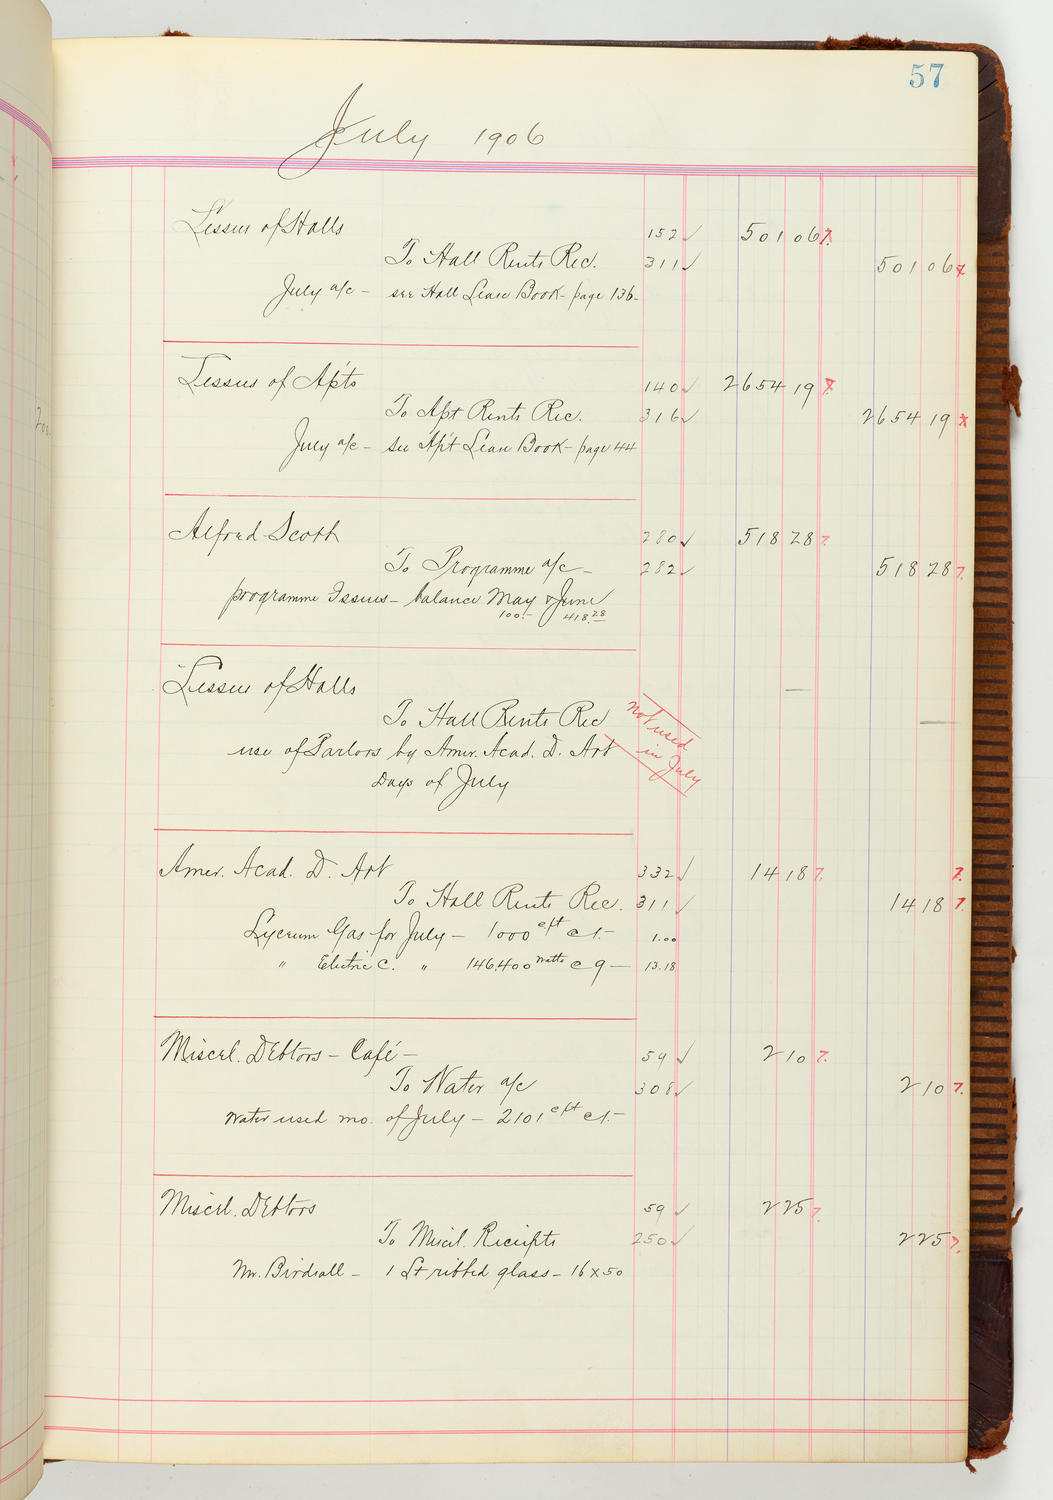 57
July 1906
Lessees of Halls 152 ✓ 501 06 7.
To Hall Rents Rec. 311 ✓ 501 06
July a/c – see Hall Lease Book – page 136 –
Lessees of Apts 140 ✓ 2654 19
To Apt Rents Rec. 316 ✓ 2654 19
July a/c – see Apt Lease Book – page 44
Alfred Scott 280 ✓ 518 28 7.
To Programme a/c – 282 ✓ 518 28 7.
programme Issues – balance May & June
100.– 418.28
Lessees of Halls —
To Hall Rents Rec —
Not used in July
use of Parlors by Amer. Acad. D. Art
Days of July
Amer. Acad. D. Art 332 ✓ 14 18 7. 7.
To Hall Rents Rec. 311 ✓ 14 18 7.
Lyceum Gas for July – 1000 cft @ 1.– 1.00
" Electric C. " 146,400 watts @ 9 – 13.18
Miscel. Debtors – Café – 59 ✓ 2 10 7.
To Water a/c 308 ✓ 2 10 7.
Water used mo. of July – 2101 cft @ 1.–
Miscel. Debtors 59 ✓ 2 25 7.
To Miscel. Receipts 250 ✓ 2 25 7.
Mr. Birdsall – 1 Lt ribbed glass – 16 x 50